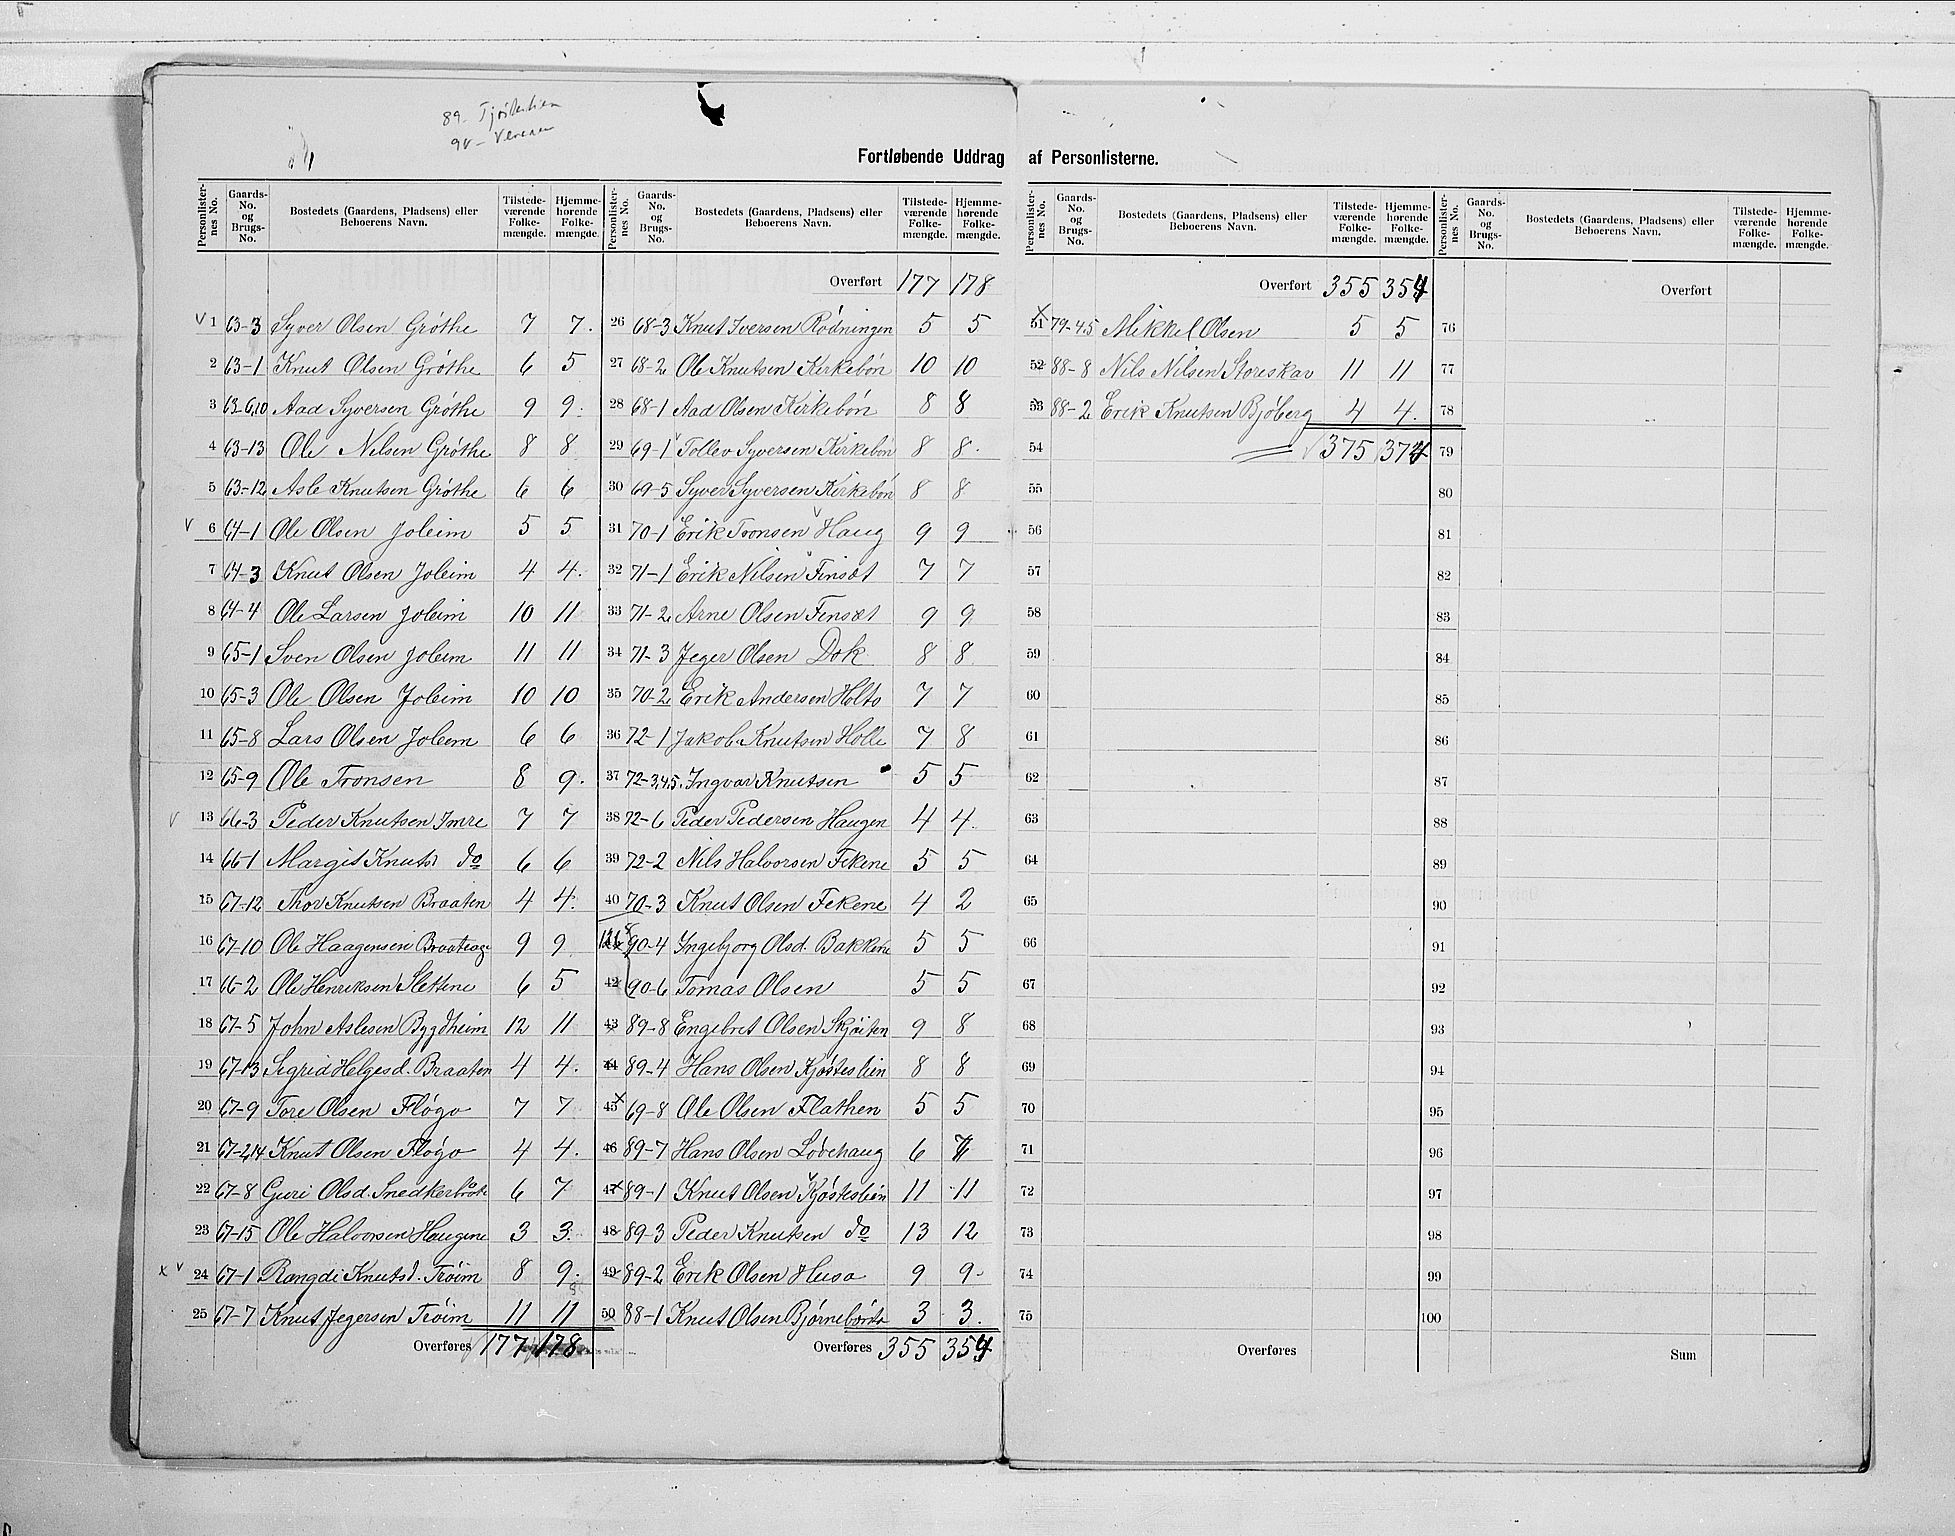 89- Tjøstelien
90-
Fortløbende Uddrag af Personlisterne.
Personlisternes No. Gaards-No. og Brugs-No. Bostedets (Gaardens, Pladsens) eller Beboerens Navn. Tilstedeværende Folkemængde. Hjemmehørende Folkemængde.
1 63-3 Syver Olsen Grøthe 7 7.
2 63-1 Knut Olsen Grøthe 6 5
3 63-6,10 Aad Syversen Grøthe 9 9.
4 63-13 Ole Nilsen Grøthe 8 8
5 63-12 Asle Knutsen Grøthe 6 6
6 64-1 Ole Olsen Joleim 5 5
7 64-3 Knut Olsen Joleim 4 4.
8 64-4 Ole Larsen Joleim 10 11
9 65-1 Sven Olsen Joleim 11 11
10 65-3 Ole Olsen Joleim 10 10
11 65-8 Lars Olsen Joleim 6 6
12 65-9 Ole Tronsen 8 9.
13 66-3 Peder Knutsen Imre 7 7
14 66-1 Margit Knutsd do 6 6
15 67-12 Thor Knutsen Braaten 4 4.
16 67-10 Ole Haagensen 9 9
17 66-2 Ole Henriksen Slettene 6 5
18 67-5 John Aslesen Bygdheim 12 11
19 67-13 Sigrid Helgesd. Braaten 4 4.
20 67-9 Tore Olsen Fløgo 7 7
21 67-2,14 Knut Olsen Fløgo 4 4.
22 67-8 Guri Olsd. 6 7
23 67-15 Ole Halvorsen Haugene 3 3.
24 67-1 Rangdi Knutsd. Trøim 8 9.
25 67-7 Knut Jegersen Trøim 11 11
Overføres 177 178
Personlisternes No. Gaards-No. og Brugs-No. Bostedets (Gaardens, Pladsens) eller Beboerens Navn. Tilstedeværende Folkemængde. Hjemmehørende Folkemængde.
Overført 177 178
26 68-3 Knut Iversen Rødningen 5 5
27 68-2 Ole Knutsen Kirkebøn 10 10
28 68-1 Aad Olsen Kirkebøn 8 8
29 69-1 Tollev Syversen Kirkebøn 8 8.
30 69-5 Syver Syversen Kirkebøn 8 8
31 70-1 Erik Tronsen Haug 9 9
32 71-1 Erik Nilsen Finset 7 7
33 71-2 Arne Olsen Finset 9 9
34 71-3 Jeger Olsen Dok 8 8
35 70-2 Erik Andersen Holto 7 7
36 72-1 Jakob Knutsen Holle 7 8
37 72-3,4,5. Ingvar Knutsen 5 5
38 72-6 Peder Pedersen Haugen 4 4.
39 72-2 Nils Halvorsen Fekene 5 5
40 70-3 Knut Olsen Fekene 4 2
90-4 Yngebjorg Olsd. Bakkene 5 5
42 90-6 Tomas Olsen 5 5
43 89-8 Engebret Olsen 9 8
44 89-4 Hans Olsen Kjøsteslien 8 8
45 69-8 Ole Olsen Flathen 5 5
46 89-7 Hans Olsen Løvehaug 6 7
47 89-1 Knut Olsen Kjøsteslien 11 11
48 89-3 Peder Knutsen do 13 12
49 89-2 Erik Olsen Huso 9 9
50 88-1 Knut Olsen 3 3.
Overføres 355 354
Personlisternes No. Gaards-No. og Brugs-No. Bostedets (Gaardens, Pladsens) eller Beboerens Navn. Tilstedeværende Folkemængde. Hjemmehørende Folkemængde.
Overført 355 354
51 79-45 Mikkel Olsen 5 5
52 88-8 Nils Nilsen Storeskar 11 11
53 88-2 Erik Knutsen Bjøberg 4 4.
54 375 374
55
56
57
58
59
60
61
62
63
64
65
66
67
68
69
70
71
72
73
74
75
Overføres
Personlisternes No. Gaards-No. og Brugs-No. Bostedets (Gaardens, Pladsens) eller Beboerens Navn. Tilstedeværende Folkemængde. Hjemmehørende Folkemængde.
Overført
76
77
78
79
80
81
82
83
84
85
86
87
88
89
90
91
92
93
94
95
96
97
98
99
100
Sum